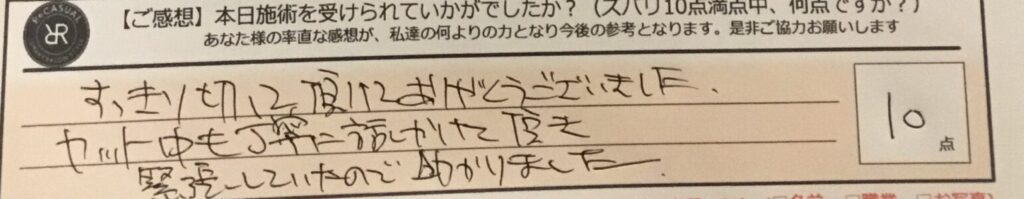 【ご感想】本日施術を受けられていかがでしたか?（ズバリ10点満点中、何点ですか?）
あなた様の率直な感想が、私達の何よりの力となり今後の参考となります。是非ご協力お願いします
すっきり切って頂けてありがとうございました.
カット中も丁寧に話しかけて頂き
緊張していたので助かりました
10
点